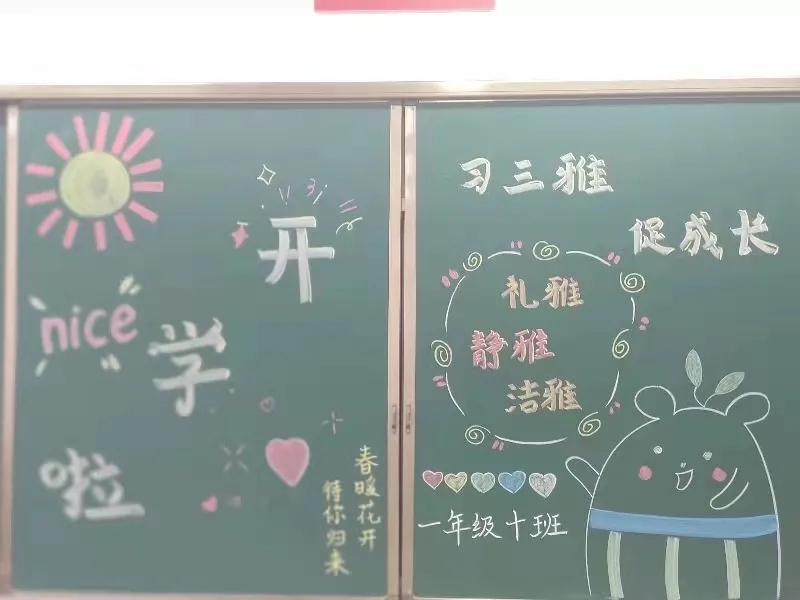 开
学
啦
nice
春暖花开
待你归来
习三雅
促成长
礼雅
静雅
洁雅
一年级十班